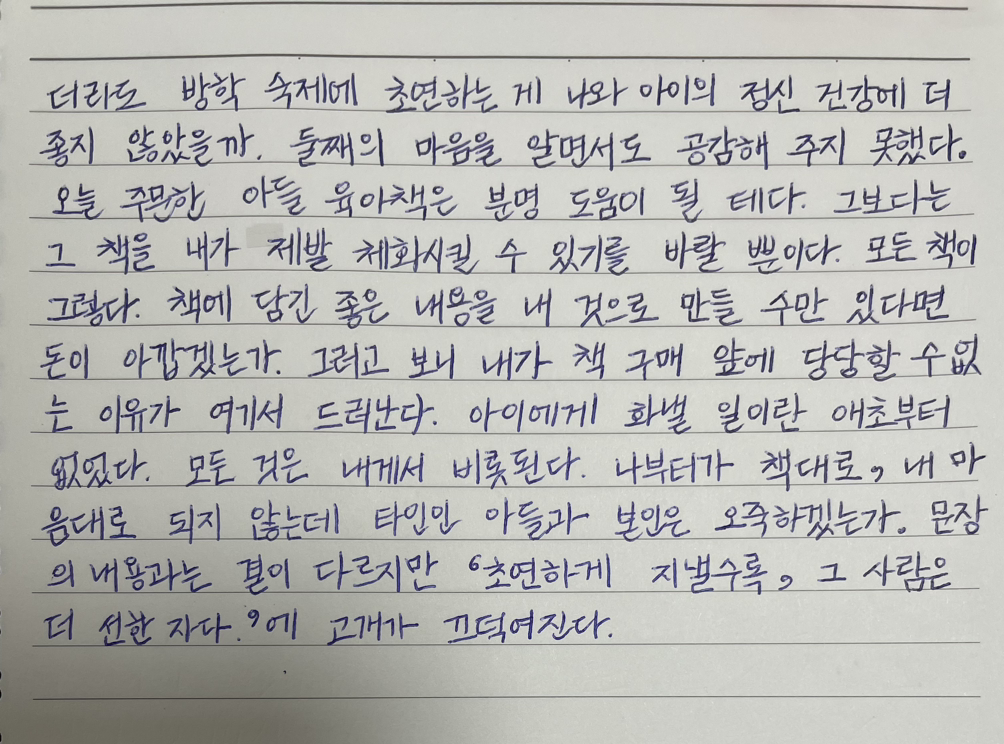 더라도 방학 숙제에 초연하는 게 나와 아이의 정신 건강에 더
좋지 않았을까. 둘째의 마음을 알면서도 공감해 주지 못했다.
오늘 주문한 아들 육아책은 분명 도움이 될 테다. 그보다는
그 책을 내가 제발 체화시킬 수 있기를 바랄 뿐이다. 모든 책이
그렇다. 책에 담긴 좋은 내용을 내 것으로 만들 수만 있다면
돈이 아깝겠는가. 그러고 보니 내가 책 구매 앞에 당당할 수 없
는 이유가 여기서 드러난다. 아이에게 화낼 일이란 애초부터
없었다. 모든 것은 내게서 비롯된다. 나부터가 책대로, 내 마
음대로 되지 않는데 타인인 아들과 본인은 오죽하겠는가. 문장
의 내용과는 결이 다르지만 '초연하게 지낼수록, 그 사람은
더 선한 자다.'에 고개가 끄덕여진다.